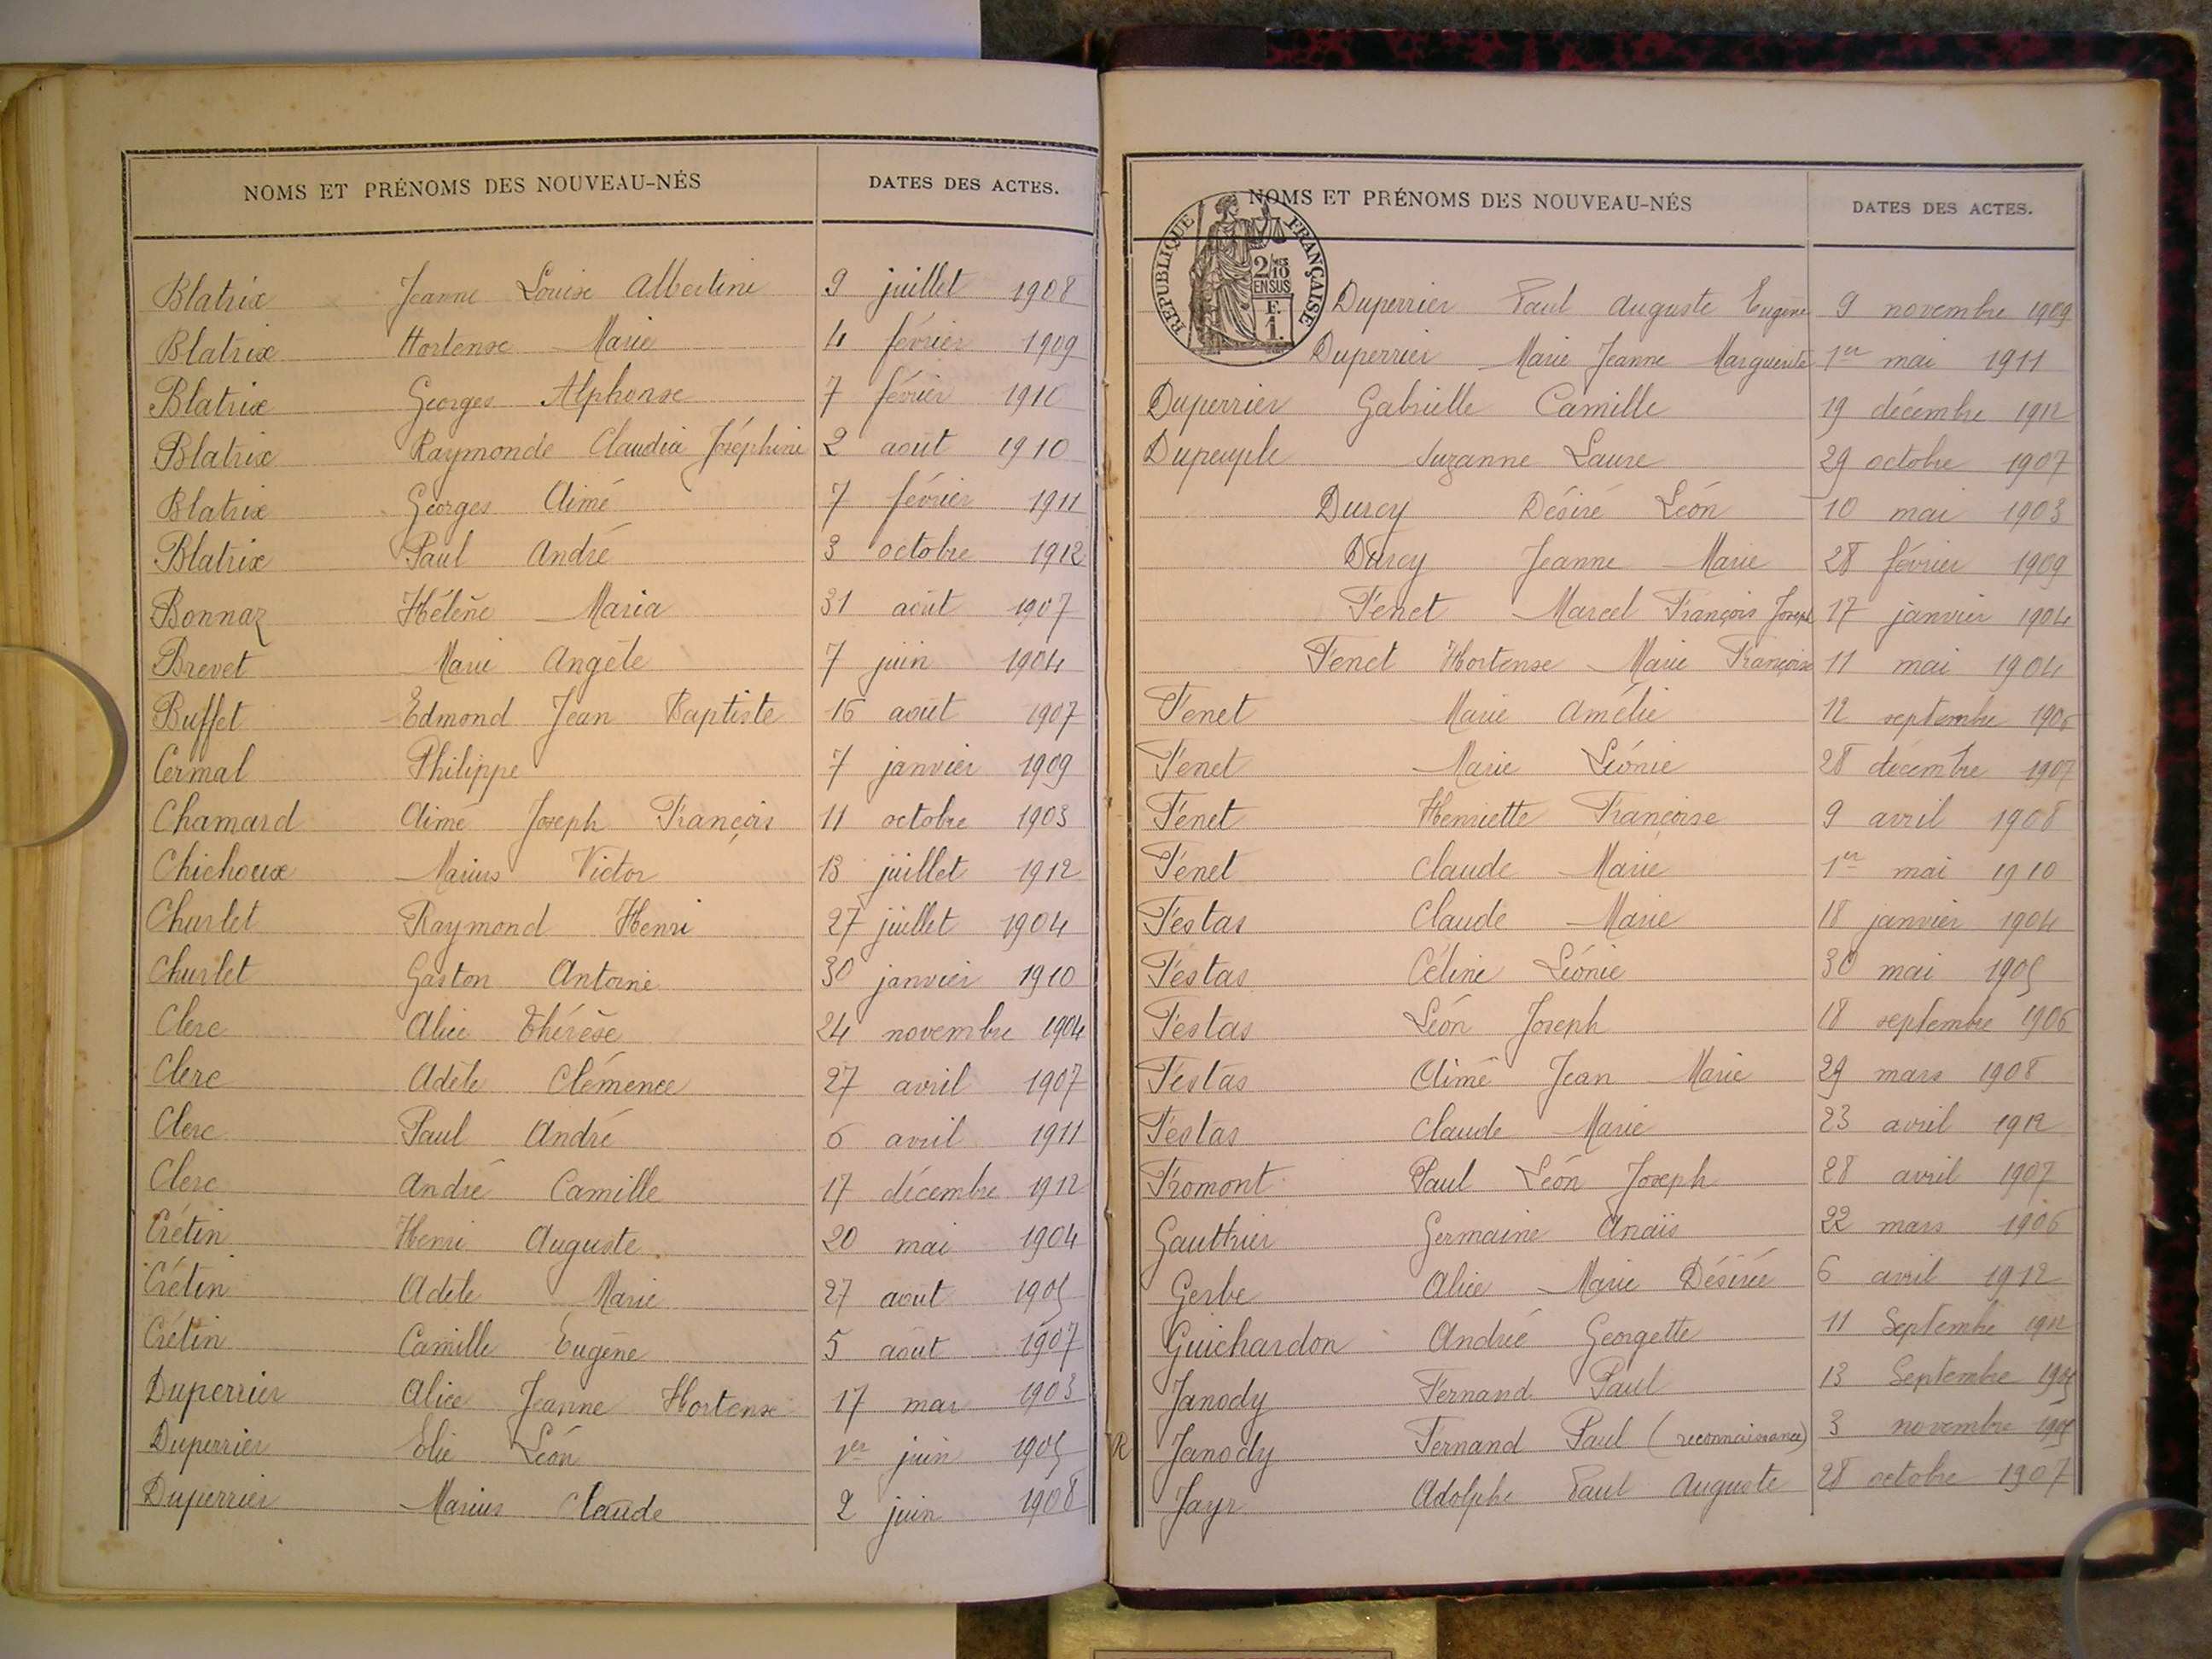 NOMS ET PRÉNOMS DES NOUVEAU-NÉS DATES DES ACTES.
Blatrix Jeanne Louise Albertine 9 juillet 1908
Blatrix Hortense Marie 4 février 1909
Blatrix Georges Alphonse 7 février 1910
Blatrix Raymonde Claudia Joséphine 2 août 1910
Blatrix Georges Aimé 7 février 1911
Blatrix Paul André 3 octobre 1912
Bonnaz Hélène Maria 31 août 1907
Brevet Marie Angèle 7 juin 1904
Buffet Edmond Jean Baptiste 16 août 1907
Cermal Philippe 7 janvier 1909
Chamard Aimé Joseph François 11 octobre 1903
Chichoux Marius Victor 13 juillet 1912
Churlet Raymond Henri 27 juillet 1904
Churlet Gaston Antoine 30 janvier 1910
Clerc Alice Thérèse 24 novembre 1904
Clerc Adèle Clémence 27 avril 1907
Clerc Paul André 6 avril 1911
Clerc André Camille 17 décembre 1912
Crétin Henri Auguste 20 mai 1904
Crétin Adèle Marie 27 août 1905
Crétin Camille Eugène 5 août 1907
Duperrier Alice Jeanne Hortense 17 mar 1903
Duperrier Elie Léon 1er juin 1905
Duperrier Marius Claude 2 juin 1908
NOMS ET PRÉNOMS DES NOUVEAU-NÉS DATES DES ACTES.
RÉPUBLIQUE FRANÇAISE
2/10 MES
EN SUS
F.
1.
Duperrier Paul Auguste Eugène 9 novembre 1909
Duperrier Marie Jeanne Marguerite 1er mai 1911
Duperrier Gabrielle Camille 19 décembre 1912
Dupeuple Suzanne Laure 29 octobre 1907
Durcy Désiré Léon 10 mai 1903
Durcy Jeanne Marie 28 février 1909
Fenet Marcel François Joseph 17 janvier 1904
Fenet Hortense Marie Françoise 11 mai 1904
Fenet Marie Amélie 12 septembre 1906
Fenet Marie Léonie 28 décembre 1907
Fenet Henriette Françoise 9 avril 1908
Fenet Claude Marie 1er mai 1910
Festas Claude Marie 18 janvier 1904
Festas Céline Léonie 30 mai 1905
Festas Léon Joseph 18 septembre 1906
Festas Aimé Jean Marie 29 mars 1908
Festas Claude Marie 23 avril 1912
Fromont Paul Léon Joseph 28 avril 1907
Gauthier Germaine Anaïs 22 mars 1906
Gerbe Alice Marie Désirée 6 avril 1912
Guichardon André Georgette 11 Septembre 1912
Janody Fernand Paul 13 Septembre 1905
R Janody Fernand Paul (reconnaissance) 3 novembre 1905
Jayr Adolphe Paul Auguste 28 octobre 1907